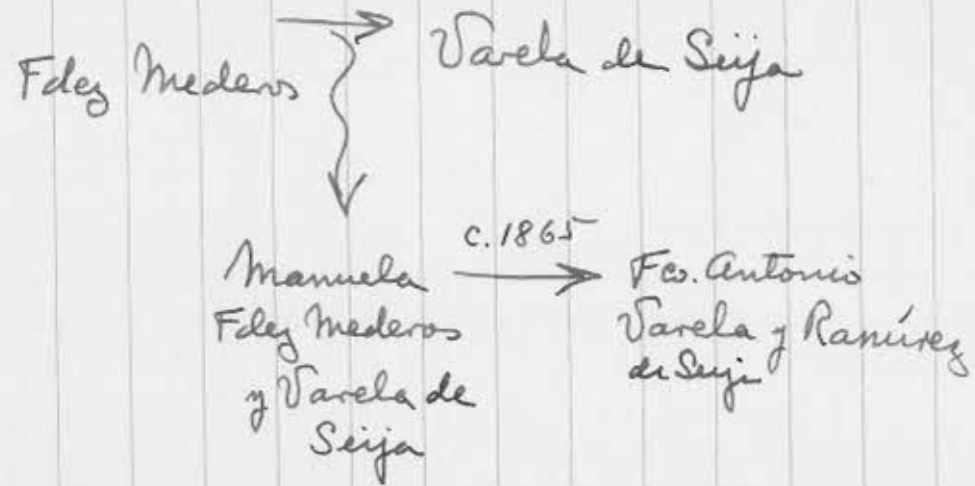 Fdez Mederos
Varela de Seija
c. 1865
Manuela
Fdez Mederos
y Varela de
Seija
Fco. Antonio
Varela y Ramírez
de Seija